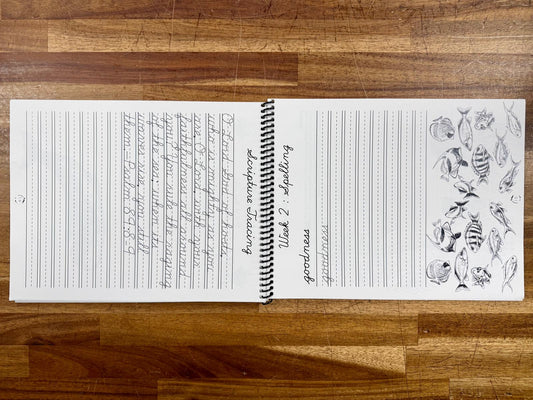 Scripture Tracing
O Lord God of hosts,
who is mighty as you
are, O Lord, with your
faithfulness all around
you? You rule the raging
of the sea; when its
waves rise, you still
them. Psalm 89:8-9
Week 2 : Spelling
goodness
goodness